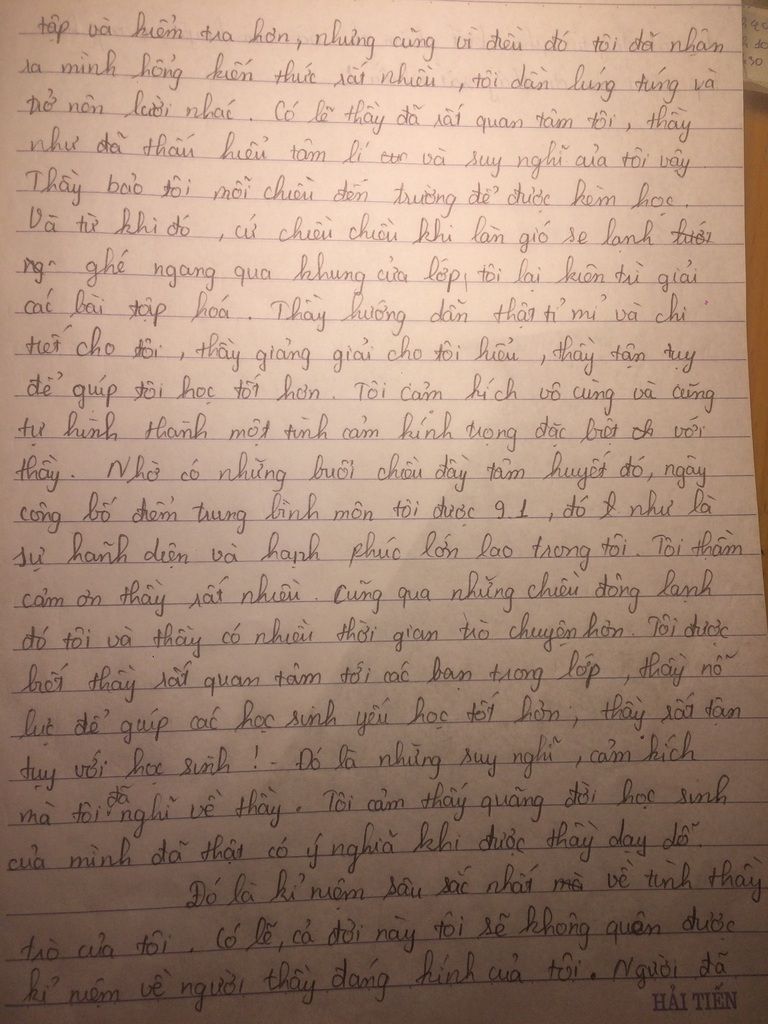 tập và kiểm tra hơn, nhưng cũng vì điều đó tôi đã nhận
ra mình hổng kiến thức rất nhiều, tôi dần lúng túng và
trở nên lười nhác. Có lẽ thầy đã rất quan tâm tôi, thầy
như đã thấu hiểu tâm lí và suy nghĩ của tôi vậy
Thầy bảo tôi mỗi chiều đến trường để được kèm học.
Và từ khi đó, cứ chiều chiều khi làn gió se lạnh
ghé ngang qua khung cửa lớp, tôi lại kiên trì giải
các bài tập hoá. Thầy hướng dẫn thật tỉ mỉ và chi
tiết cho tôi, thầy giảng giải cho tôi hiểu, thầy tận tụy
để guíp tôi học tốt hơn. Tôi cảm kích vô cùng và cũng
tự hình thành một tình cảm kính trọng đặc biệt với
thầy. Nhờ có những buổi chiều đầy tâm huyết đó, ngày
công bố điểm trung bình môn tôi được 9.1, đó như là
sự hãnh diện và hạnh phúc lớn lao trong tôi. Tôi thầm
cảm ơn thầy rất nhiều. Cũng qua những chiều đông lạnh
đó tôi và thầy có nhiều thời gian trò chuyện hơn. Tôi được
biết thầy rất quan tâm tới các bạn trong lớp, thầy nỗ
lực để guíp các học sinh yếu học tốt hơn, thầy rất tận
tụy với học sinh! - Đó là những suy nghĩ, cảm kích
mà tôi đã nghĩ về thầy. Tôi cảm thấy quãng đời học sinh
của mình đã thật có ý nghĩa khi được thầy dạy dỗ.
Đó là kỉ niệm sâu sắc nhất về tình thầy
trò của tôi. Có lẽ, cả đời này tôi sẽ không quên được
kỉ niệm về người thầy đáng kính của tôi. Người đã
HẢI TIẾN